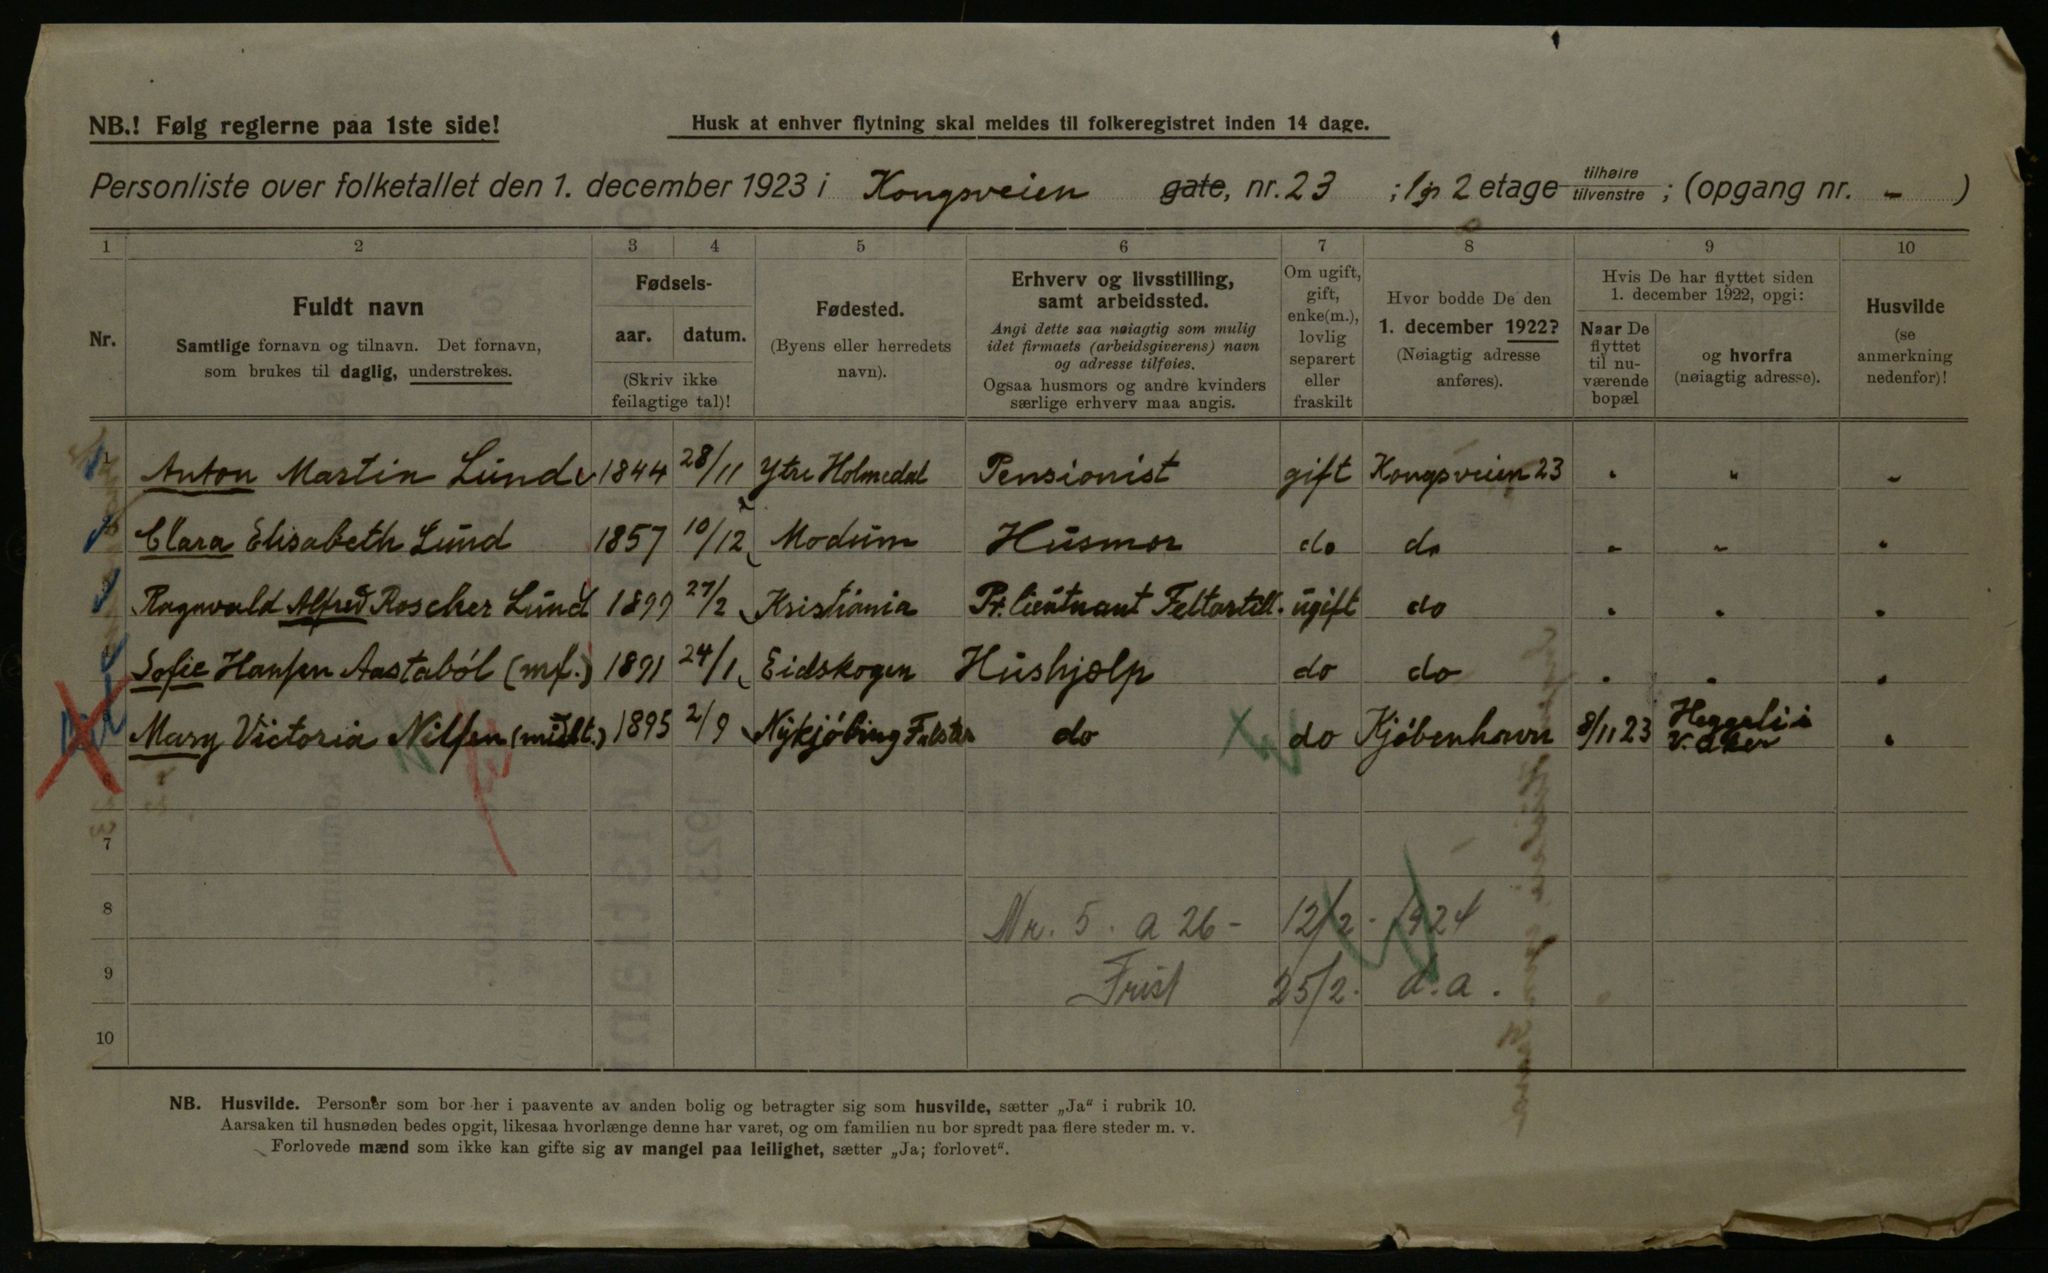 NB.! Følg reglerne paa 1ste side!
Husk at enhver flytning skal meldes til folkeregistret inden 14 dage.
Personliste over folketallet den 1. december 1923 i Kongsveien gate, nr. 23 ; 1 og 2 etage tilhøire tilvenstre ; (opgang nr. - )
1 2 3 4 5 6 7 8 9 10
Nr.
Fuldt navn
Samtlige fornavn og tilnavn. Det fornavn,
som brukes til daglig, understrekes.
Fødsels-
aar. datum.
(Skriv ikke
feilagtige tal)!
Fødested.
(Byens eller herredets
navn).
Erhverv og livsstilling,
samt arbeidssted.
Angi dette saa nøiagtig som mulig
idet firmaets (arbeidsgiverens) navn
og adresse tilføies.
Ogsaa husmors og andre kvinders
særlige erhverv maa angis.
Om ugift,
gift,
enke(m.),
lovlig
separert
eller
fraskilt
Hvor bodde De den
1. december 1922?
(Nøiagtig adresse
anføres).
Hvis De har flyttet siden
1. december 1922, opgi:
Naar De
flyttet
til nu-
værende
bopæl
og hvorfra
(nøiagtig adresse).
Husvilde
(se
anmerkning
nedenfor)!
1 Anton Martin Lund 1844 28/11 Ytre Holmedal Pensionist gift Kongsveien 23 " " "
Clara Elisabeth Lund 1857 10/12 Modum Husmor do do " " "
Ragnvald Alfred Roscher Lund 1899 27/2 Kristiania Pr. lieutnant Feltartill. ugift do " " "
Sofie Hansen Aastaból (mf.) 1891 24/1 Eidskogen Hushjælp do do " " "
Mary Victoria Nilsen (midlt.) 1895 2/9 Nykjóbing Falster do do Kjóbenhavn 8/11 23 Heggeli i V. Aker "
6
7
8 Nr. 5. a 26 - 12/2 - 1924
9 Frist 25/2. d.a.
10
NB. Husvilde. Personer som bor her i paavente av anden bolig og betragter sig som husvilde, sætter „Ja" i rubrik 10.
Aarsaken til husnøden bedes opgit, likesaa hvorlænge denne har varet, og om familien nu bor spredt paa flere steder m. v.
Forlovede mænd som ikke kan gifte sig av mangel paa leilighet, sætter „Ja; forlovet".